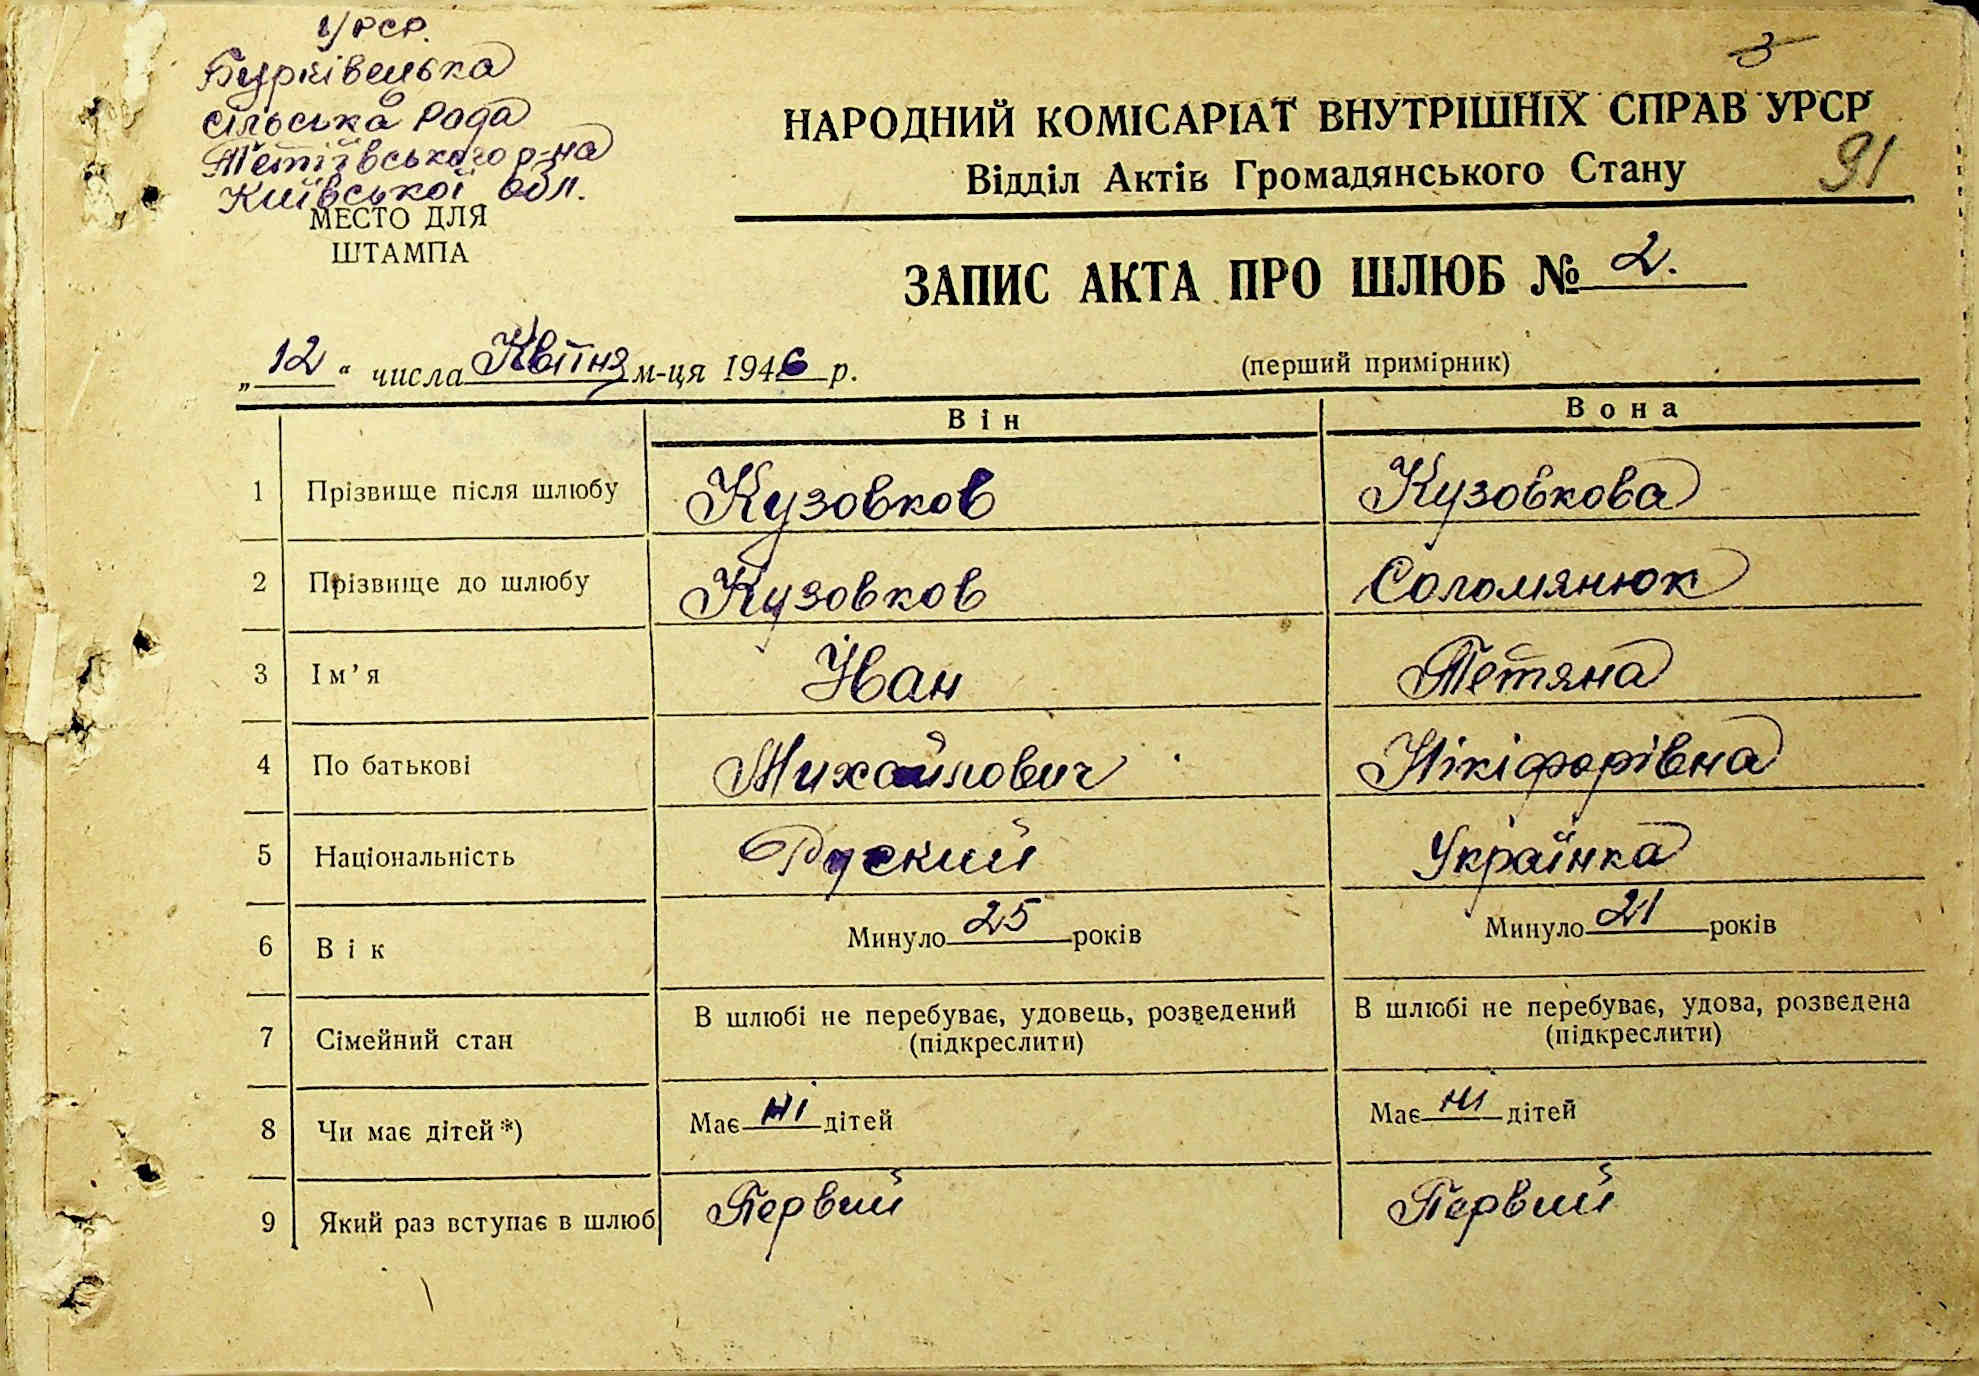 УРСР.
Бурківецька
сільська Рада
Тетіївського р-на
Київської обл.
МЕСТО ДЛЯ
ШТАМПА
3
НАРОДНИЙ КОМІСАРІАТ ВНУТРІШНІХ СПРАВ УРСР
Відділ Актів Громадянського Стану
91
ЗАПИС АКТА ПРО ШЛЮБ № 2.
„12“ числа Квітня м-ця 1946 р.
(перший примірник)
Він Вона
1 Прізвище після шлюбу Кузовков Кузовкова
2 Прізвище до шлюбу Кузовков Соломянюк
3 Ім’я Іван Тетяна
4 По батькові Михайлович Нікіфорівна
5 Національність Руский Українка
6 Вік Минуло 25 років Минуло 21 років
7 Сімейний стан В шлюбі не перебуває, удовець, розведений (підкреслити) В шлюбі не перебуває, удова, розведена (підкреслити)
8 Чи має дітей*) Має ні дітей Має ні дітей
9 Який раз вступає в шлюб Первий Первий